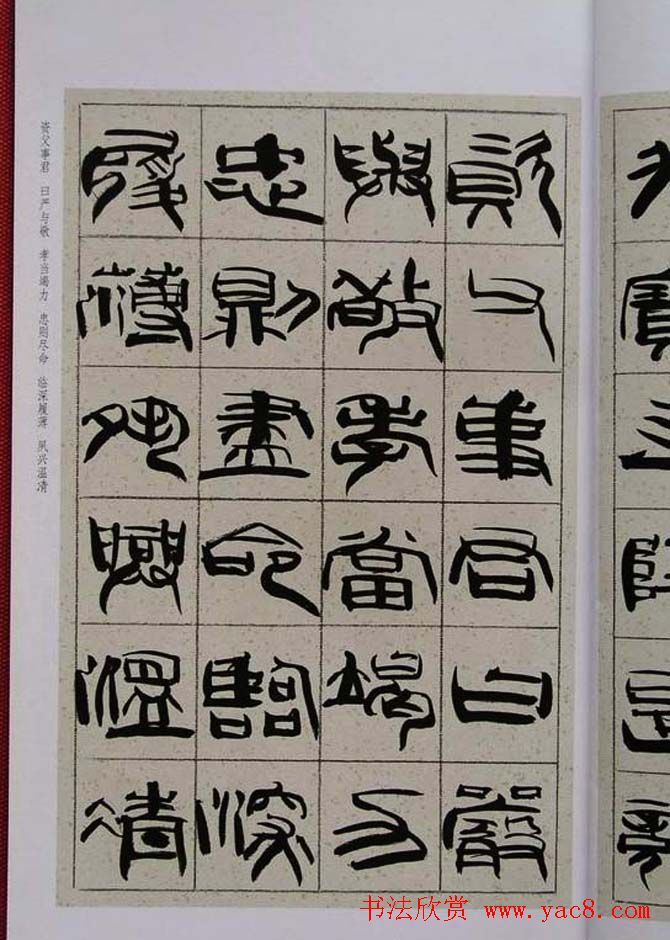 資父事君曰嚴
與敬孝當竭力
忠則盡命臨深
履薄夙興溫凊
资父事君 曰严与敬 孝当竭力 忠则尽命 临深履薄 夙兴温凊
书法欣赏 www.yac8.com